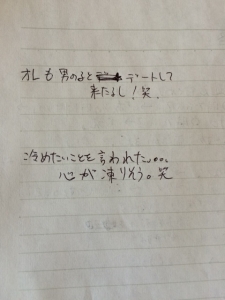 オレも男の子とデートして
来たるし!笑
冷めたいことを言われた。。。
心が凍りそう。笑